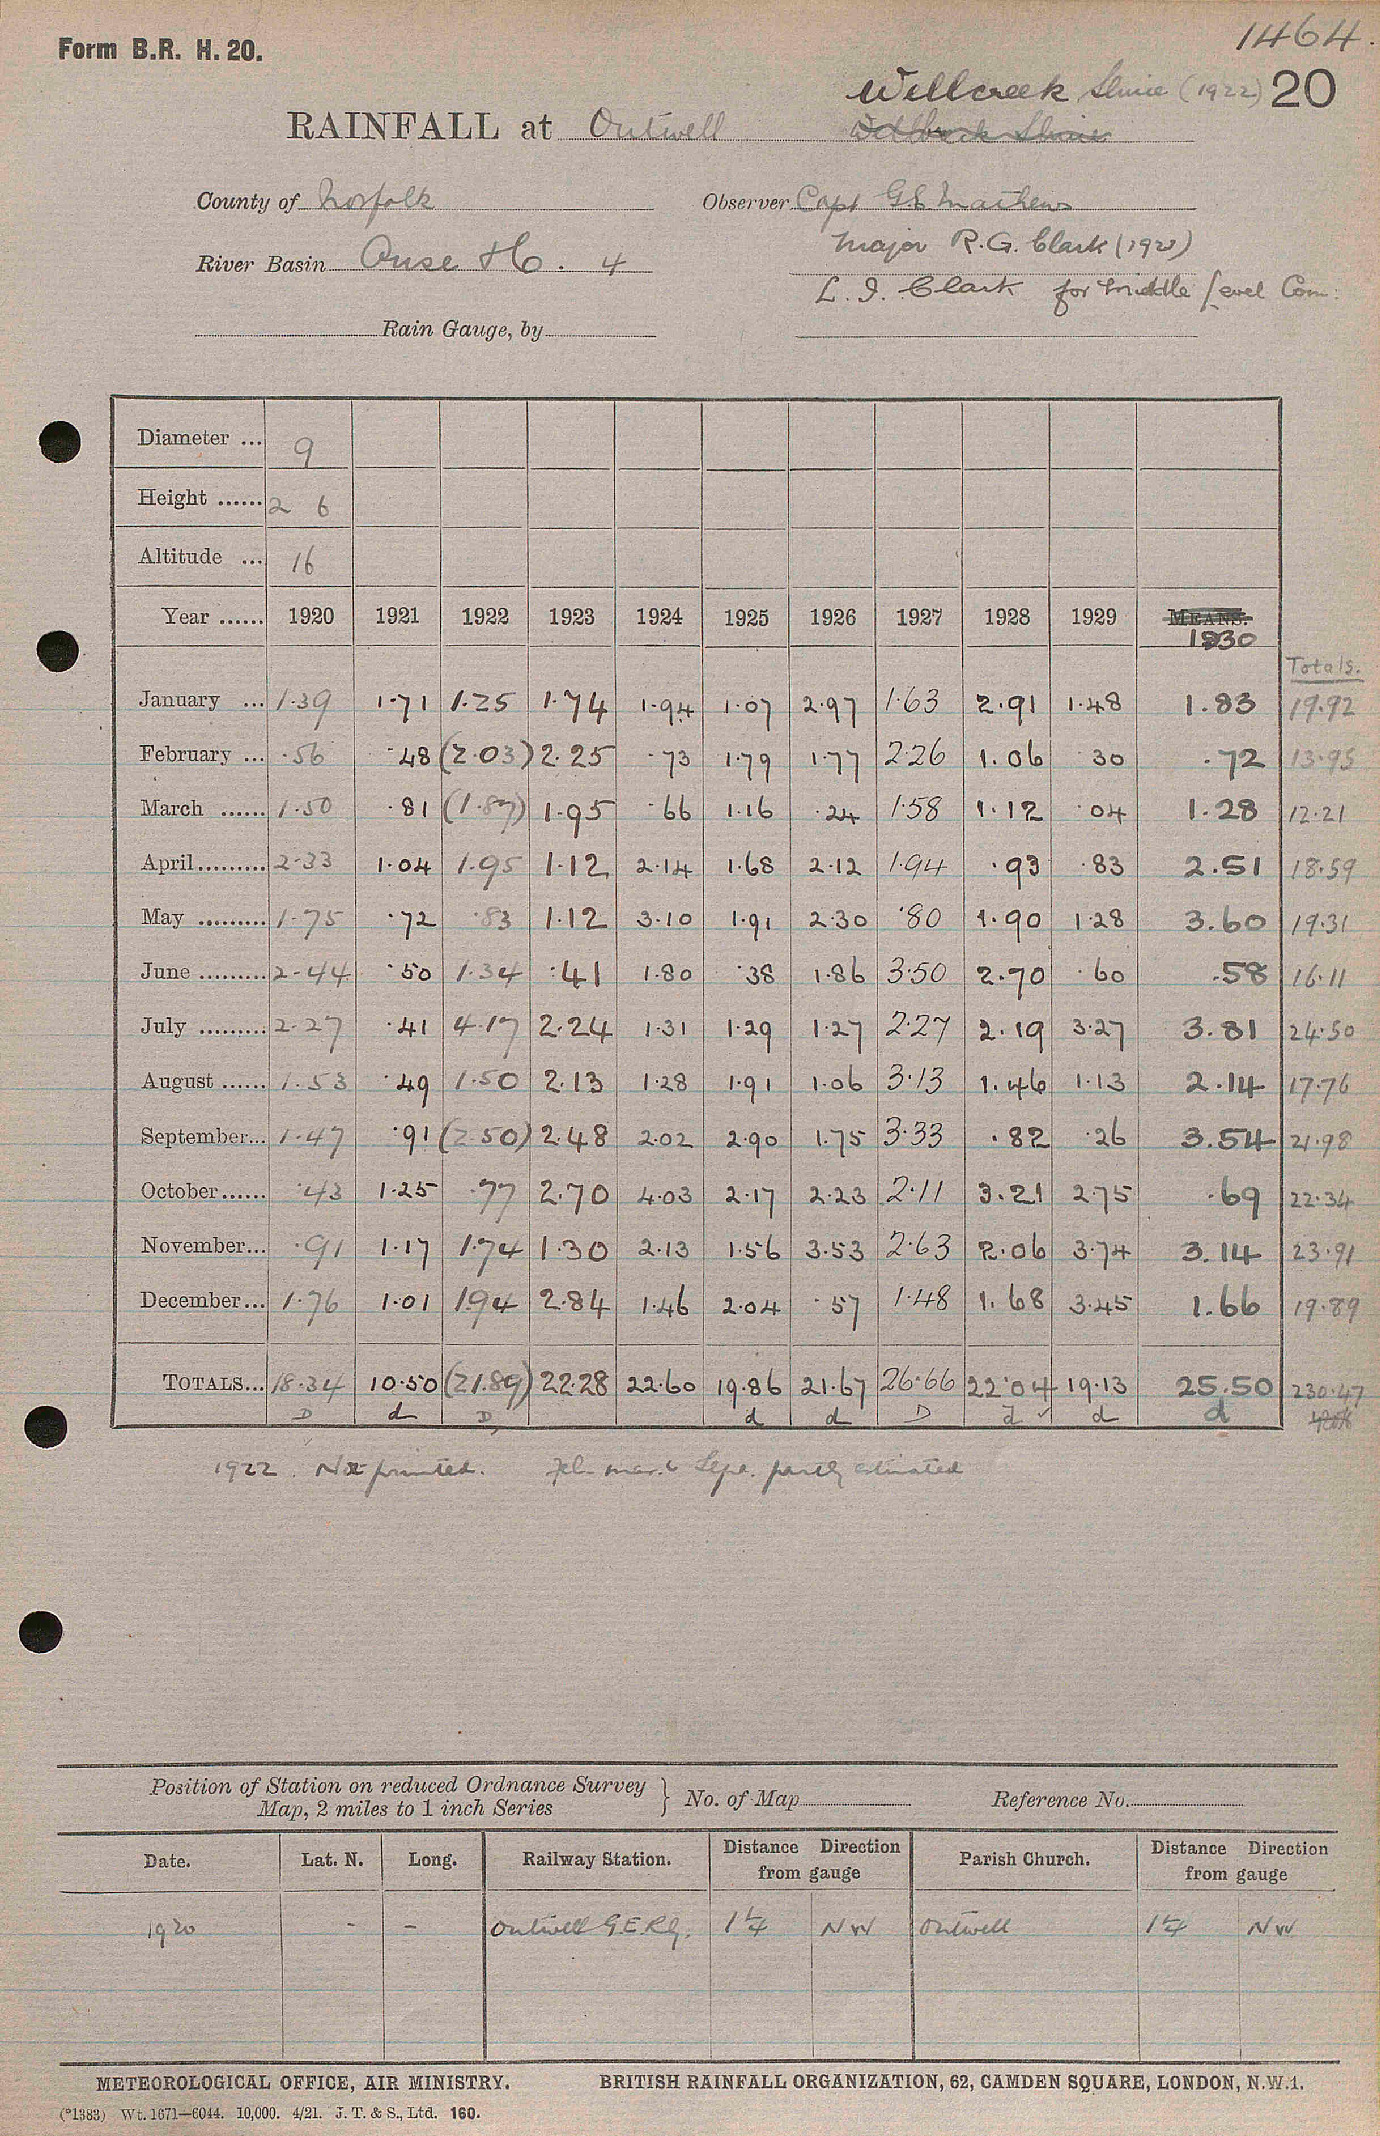 1464.
Form B.R. H. 20.
Wellcreek Sluice (1922) 20
RAINFALL at Outwell
County of Norfolk Observer Capt G.L Mathews
Major R.G. Clark (1921)
River Basin Ouse &c. 4
L. J. Clark for Middle Level Com:
Rain Gauge, by
Diameter ... 9
Height ...... 2 6
Altitude ... 16
Year ...... 1920 1921 1922 1923 1924 1925 1926 1927 1928 1929 MEANS.
1930
Totals.
January ... 1.39 1.71 1.25 1.74 1.94 1.07 2.97 1.63 2.91 1.48 1.83 19.92
February ... .56 .48 (2.03) 2.25 .73 1.79 1.77 2.26 1.06 30 .72 13.95
March ...... 1.50 .81 (1.87) 1.95 .66 1.16 .24 1.58 1.12 .04 1.28 12.21
April ......... 2.33 1.04 1.95 1.12 2.14 1.68 2.12 1.94 .93 .83 2.51 18.59
May ......... 1.75 .72 .83 1.12 3.10 1.91 2.30 .80 1.90 1.28 3.60 19.31
June ......... 2.44 .50 1.34 .41 1.80 .38 1.86 3.50 2.70 .60 .58 16.11
July ......... 2.27 .41 4.17 2.24 1.31 1.29 1.27 2.27 2.19 3.27 3.81 24.50
August ...... 1.53 .49 1.50 2.13 1.28 1.91 1.06 3.13 1.46 1.13 2.14 17.76
September... 1.47 .91 (2.50) 2.48 2.02 2.90 1.75 3.33 .82 .26 3.54 21.98
October...... .43 1.25 .77 2.70 4.03 2.17 2.23 2.11 3.21 2.75 .69 22.34
November... .91 1.17 1.74 1.30 2.13 1.56 3.53 2.63 2.06 3.74 3.14 23.91
December... 1.76 1.01 1.94 2.84 1.46 2.04 .57 1.48 1.68 3.45 1.66 19.89
TOTALS... 18.34 10.50 (21.89) 22.28 22.60 19.86 21.67 26.66 22.04 19.13 25.50 230.47
D d D, d d D d ✓ d d
1922. Not printed. Feb. Mar. & Sept. partly estimated
Position of Station on reduced Ordnance Survey
Map, 2 miles to 1 inch Series } No. of Map Reference No.
Date. Lat. N. Long. Railway Station. Distance Direction from gauge Parish Church. Distance Direction from gauge
1920 - - Outwell G.E.Ry. 1¼ NW Outwell 1¼ NW
METEOROLOGICAL OFFICE, AIR MINISTRY. BRITISH RAINFALL ORGANIZATION, 62, CAMDEN SQUARE, LONDON, N.W.1.
(*1383) Wt. 1671—6044. 10,000. 4/21. J. T. & S., Ltd. 160.